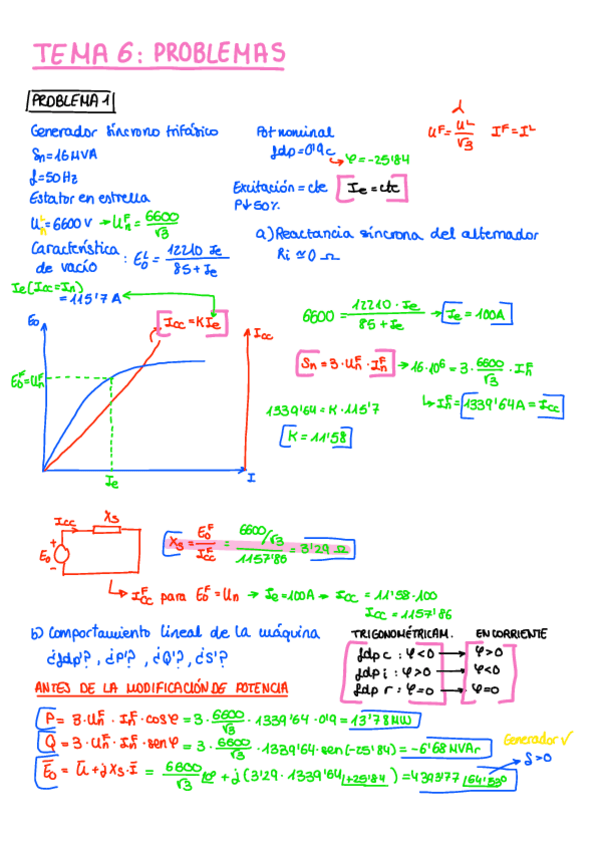 TEMA 6: PROBLEMAS
PROBLEMA 1
Generador síncrono trifásico
Sn=16MVA
f=50Hz
Estator en estrella
U_n^L=6600V → U_n^F = 6600/√3
Característica de vacío : E_0^L = 12210 Ie / 85+Ie
Pot nominal
fdp=0'9c
→ φ=-25'84
Excitación = cte [Ie = cte]
P↓50%
λ
U^F = U^L/√3 I^F = I^L
a) Reactancia síncrona del alternador
Ri ≃ 0 Ω
Ie (Icc=In)
= 115'7A
Icc = K Ie
E0
Icc
E_0^F = U_n^F
Ie
I
6600 = 12210 · Ie / 85 + Ie → Ie = 100A
Sn = 3 · U_n^F · I_n^F → 16·10^6 = 3 · 6600/√3 · I_n^F
↳ I_n^F = 1339'64A = Icc
1339'64 = K · 115'7
K = 11'58
Icc
Xs
+
E0
-
Xs = E_0^F / I_cc^F = 6600/√3 / 1157'86 = 3'29 Ω
↳ I_cc^F para E_0^F = Un → Ie = 100A → Icc = 11'58·100
Icc = 1157'86
b) Comportamiento lineal de la máquina
¿fdp'?, ¿P'?, ¿Q'?, ¿S'?
TRIGONOMÉTRICAM. EN CORRIENTE
fdp c : φ<0 → φ>0
fdp i : φ>0 → φ<0
fdp r : φ=0 → φ=0
ANTES DE LA MODIFICACIÓN DE POTENCIA
P = 3 · U_n^F · I_n^F · cosφ = 3 · 6600/√3 · 1339'64 · 0'9 = 13'78MW
Q = 3 · U_n^F · I_n^F · senφ = 3 · 6600/√3 · 1339'64 · sen(-25'84) = -6'68 MVAr
Generador ✓
δ>0
E0 = U + jXs · I = 6600/√3 |0° + j(3'29 · 1339'64 |+25'84) = 4393'77 |64'53°